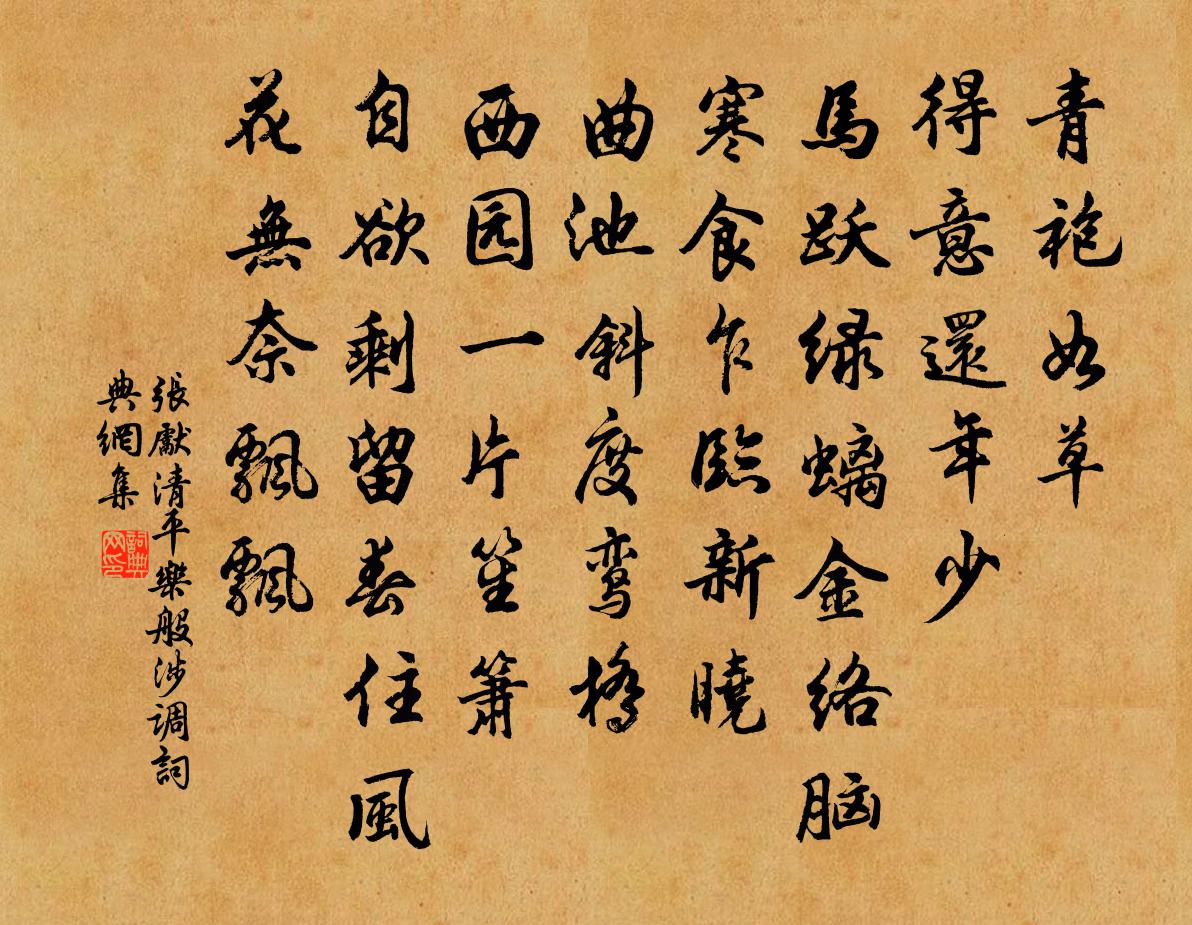 青袍如草
得意還年少
馬跃绿螭金络脑
寒食乍臨新曉
曲池斜度鸾橋
西园一片笙箫
自欲剩留春住風
花無奈飄飄
張獻清平樂般涉调詞
典網集
詞典
网印